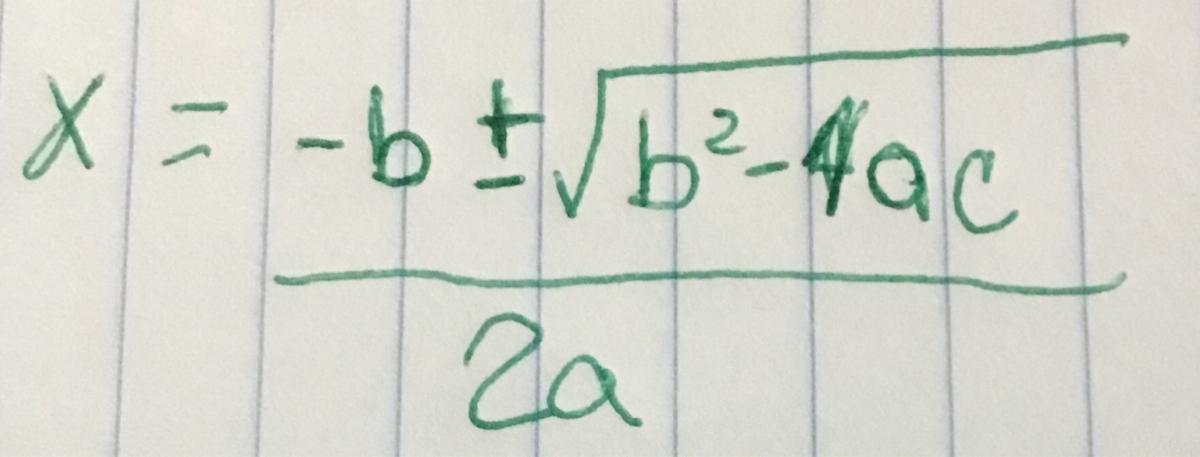 x = -b ± √(b² - 4ac)
2a